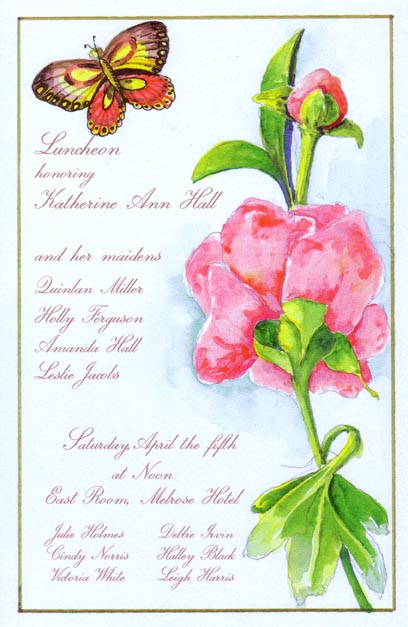 Luncheon
honoring
Katherine Ann Hall
and her maidens
Quinlan Miller
Holly Ferguson
Amanda Hall
Leslie Jacobs
Saturday, April the fifth
at Noon
East Room, Melrose Hotel
Julie Holmes Debbie Irvin
Cindy Norris Halley Black
Victoria White Leigh Harris